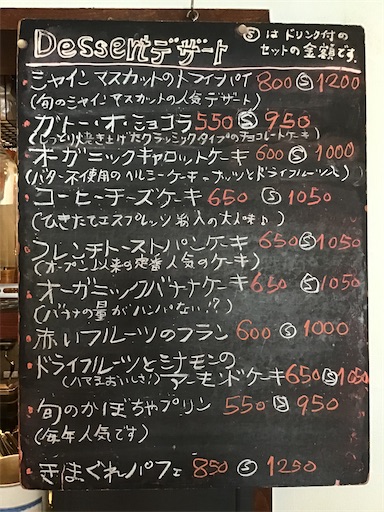 Dessert デザート
Ⓢは ドリンク付の
セットの金額です。
シャインマスカットのトライフルパイ 800 Ⓢ 1200
(旬のシャインマスカットの人気デザート)
ガトー・オ・ショコラ 550 Ⓢ 950
(しっとり焼き上げたクラシックタイプのチョコレートケーキ)
オーガニックキャロットケーキ 600 Ⓢ 1000
(バター不使用のヘルシーケーキ。ナッツとドライフルーツ入)
コーヒーチーズケーキ 650 Ⓢ 1050
(ひきたてエスプレッソ粉入の大人味♪)
フレンチトーストパンケーキ 650 Ⓢ 1050
(オープン以来の定番人気のケーキ)
オーガニックバナナケーキ 650 Ⓢ 1050
(バナナの量がハンパない!?)
赤いフルーツのフラン 600 Ⓢ 1000
ドライフルーツとシナモンの
(ハマるおいしさ!) アーモンドケーキ 650 Ⓢ 1050
旬のかぼちゃプリン 550 Ⓢ 950
(毎年人気です)
きまぐれパフェ 850 Ⓢ 1250